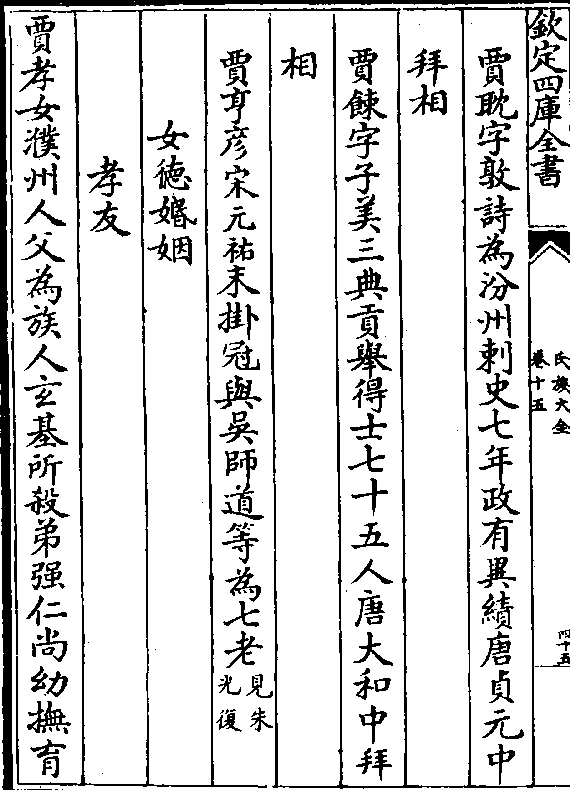 欽定四庫全書
氏族大全
卷十五
四十五
賈耽字敦詩為汾州刺史七年政有異績唐貞元中
拜相
賈餗字子美三典貢舉得士七十五人唐大和中拜
相
賈亨彦宋元祐末掛冠與吳師道等為七老見朱光復
女徳婚姻
孝友
賈孝女濮州人父為族人玄基所殺弟强仁尚幼撫育